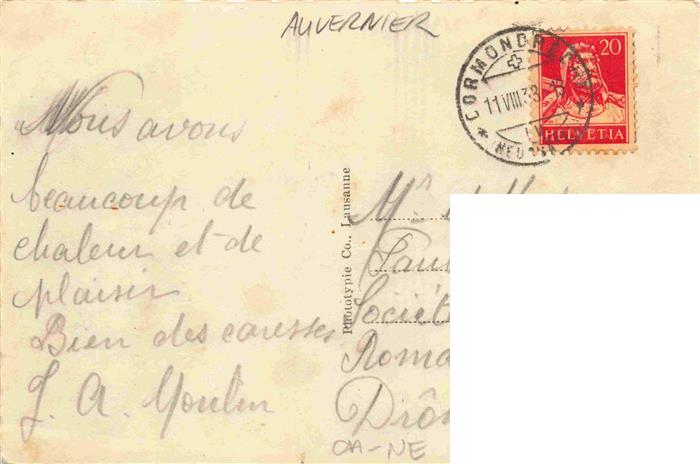 AUVERNIER
CORMONDRE
11.VIII.33
(NEU
20
HELVETIA
Nous avons
beaucoup de
chaleur et de
plaisir
Bien des caresses
J. A. Moulin
Phototypie Co., Lausanne
Société
Roma
Drô
CA-NE